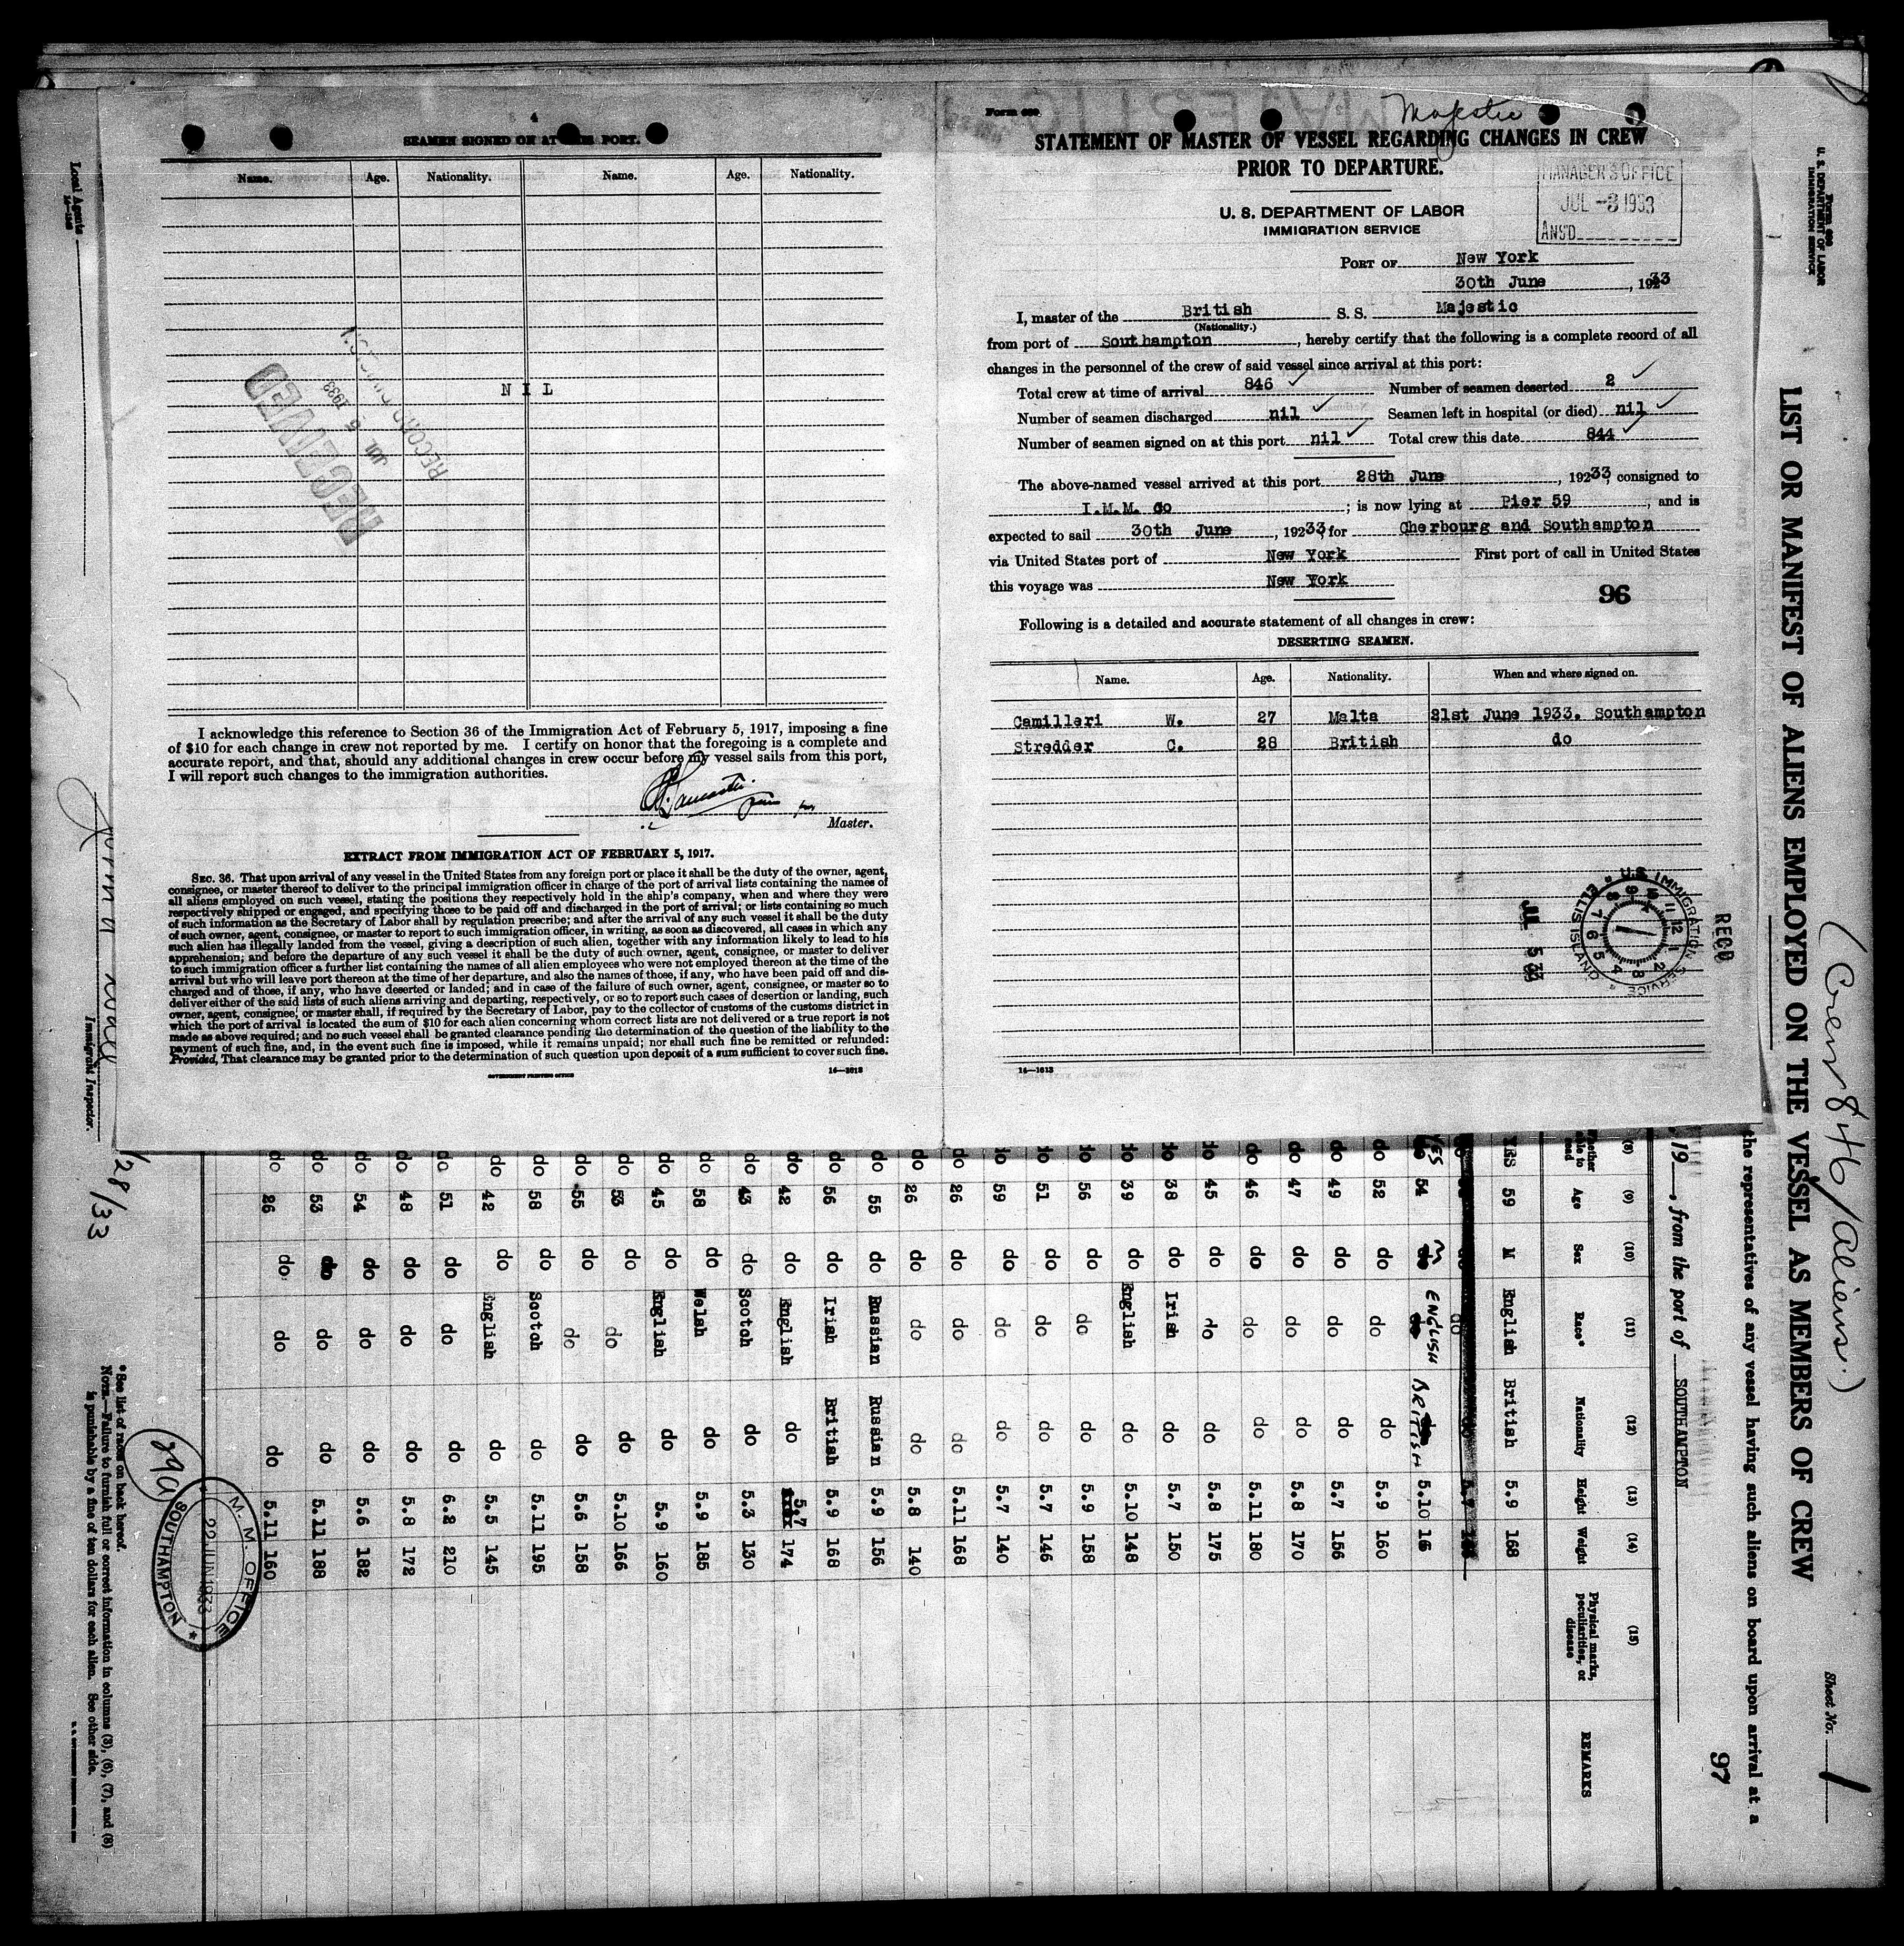 4
SEAMEN SIGNED ON AT THIS PORT.
Name. Age. Nationality. Name. Age. Nationality.
N I L
RECEIVED
JUL 5 1933
RECORD
I acknowledge this reference to Section 36 of the Immigration Act of February 5, 1917, imposing a fine
of $10 for each change in crew not reported by me. I certify on honor that the foregoing is a complete and
accurate report, and that, should any additional changes in crew occur before my vessel sails from this port,
I will report such changes to the immigration authorities.
Master.
EXTRACT FROM IMMIGRATION ACT OF FEBRUARY 5, 1917.
SEC. 36. That upon arrival of any vessel in the United States from any foreign port or place it shall be the duty of the owner, agent,
consignee, or master thereof to deliver to the principal immigration officer in charge of the port of arrival lists containing the names of
all aliens employed on such vessel, stating the positions they respectively hold in the ship's company, when and where they were
respectively shipped or engaged, and specifying those to be paid off and discharged in the port of arrival; or lists containing so much
of such information as the Secretary of Labor shall by regulation prescribe; and after the arrival of any such vessel it shall be the duty
of such owner, agent, consignee, or master to report to such immigration officer, in writing, as soon as discovered, all cases in which any
such alien has illegally landed from the vessel, giving a description of such alien, together with any information likely to lead to his
apprehension; and before the departure of any such vessel it shall be the duty of such owner, agent, consignee, or master to deliver
to such immigration officer a further list containing the names of all alien employees who were not employed thereon at the time of the
arrival but who will leave port thereon at the time of her departure, and also the names of those, if any, who have been paid off and dis-
charged and of those, if any, who have deserted or landed; and in case of the failure of such owner, agent, consignee, or master so to
deliver either of the said lists of such aliens arriving and departing, respectively, or so to report such cases of desertion or landing, such
owner, agent, consignee, or master shall, if required by the Secretary of Labor, pay to the collector of customs of the customs district in
which the port of arrival is located the sum of $10 for each alien concerning whom correct lists are not delivered or a true report is not
made as above required; and no such vessel shall be granted clearance pending the determination of the question of the liability to the
payment of such fine, and, in the event such fine is imposed, while it remains unpaid; nor shall such fine be remitted or refunded:
Provided, That clearance may be granted prior to the determination of such question upon deposit of a sum sufficient to cover such fine.
GOVERNMENT PRINTING OFFICE 14—1613
Form 689
Majestic
STATEMENT OF MASTER OF VESSEL REGARDING CHANGES IN CREW
PRIOR TO DEPARTURE.
MANAGER'S OFFICE
JUL -3 1933
ANS'D
U. S. DEPARTMENT OF LABOR
IMMIGRATION SERVICE
PORT OF New York
30th June, 19233
I, master of the British S. S. Majestic
(Nationality.)
from port of Southampton, hereby certify that the following is a complete record of all
changes in the personnel of the crew of said vessel since arrival at this port:
Total crew at time of arrival 846 ✓ Number of seamen deserted 2 ✓
Number of seamen discharged nil ✓ Seamen left in hospital (or died) nil ✓
Number of seamen signed on at this port nil ✓ Total crew this date 844 ✓
The above-named vessel arrived at this port 28th June, 19233, consigned to
I.M.M. Co; is now lying at Pier 59, and is
expected to sail 30th June, 19233, for Cherbourg and Southampton
via United States port of New York First port of call in United States
this voyage was New York
96
Following is a detailed and accurate statement of all changes in crew:
DESERTING SEAMEN.
Name. Age. Nationality. When and where signed on.
Camilleri W. 27 Malta 21st June 1933. Southampton
Stredder C. 28 British do
U.S. IMMIGRATION SERVICE ELLIS ISLAND
JUL 5 33
REC'D
14—1613
Form 689
U. S. DEPARTMENT OF LABOR
IMMIGRATION SERVICE
(Crew 846/Aliens.)
Sheet No. 1
LIST OR MANIFEST OF ALIENS EMPLOYED ON THE VESSEL AS MEMBERS OF CREW
the representatives of any vessel having such aliens on board upon arrival at a
97
, 19 , from the port of SOUTHAMPTON
(8) (9) (10) (11) (12) (13) (14) (15)
Age Sex Race* Nationality Height Weight Physical marks, peculiarities, or disease REMARKS
YES 59 M English British 5.9 168
YES 54 M ENGLISH BRITISH 5.10 16
do 52 do do do 5.9 160
do 49 do do do 5.7 156
do 47 do do do 5.8 170
do 46 do do do 5.11 180
do 45 do do do 5.8 175
do 38 do Irish do 5.7 150
do 39 do English do 5.10 148
do 56 do do do 5.9 158
do 51 do do do 5.7 146
do 59 do do do 5.7 140
do 26 do do do 5.11 168
do 26 do do do 5.8 140
do 55 do Russian Russian 5.9 156
do 56 do Irish British 5.9 168
do 42 do English do 5.7 174
do 43 do Scotch do 5.3 130
do 58 do Welsh do 5.9 185
do 45 do English do 5.9 160
do 53 do do do 5.10 166
do 55 do do do 5.6 158
do 58 do Scotch do 5.11 195
do 42 do English do 5.5 145
do 51 do do do 6.2 210
do 48 do do do 5.8 172
do 54 do do do 5.6 182
do 53 do do do 5.11 188
do 26 do do do 5.11 160
M. M. OFFICE
22 JUN 1933
SOUTHAMPTON
*See list of races on back hereof.
NOTE.—Failure to furnish full or correct information in columns (3), (6), (7), and (8)
is punishable by a fine of ten dollars for each alien. See other side.
Local Agents
Immigrant Inspector.
/28/33